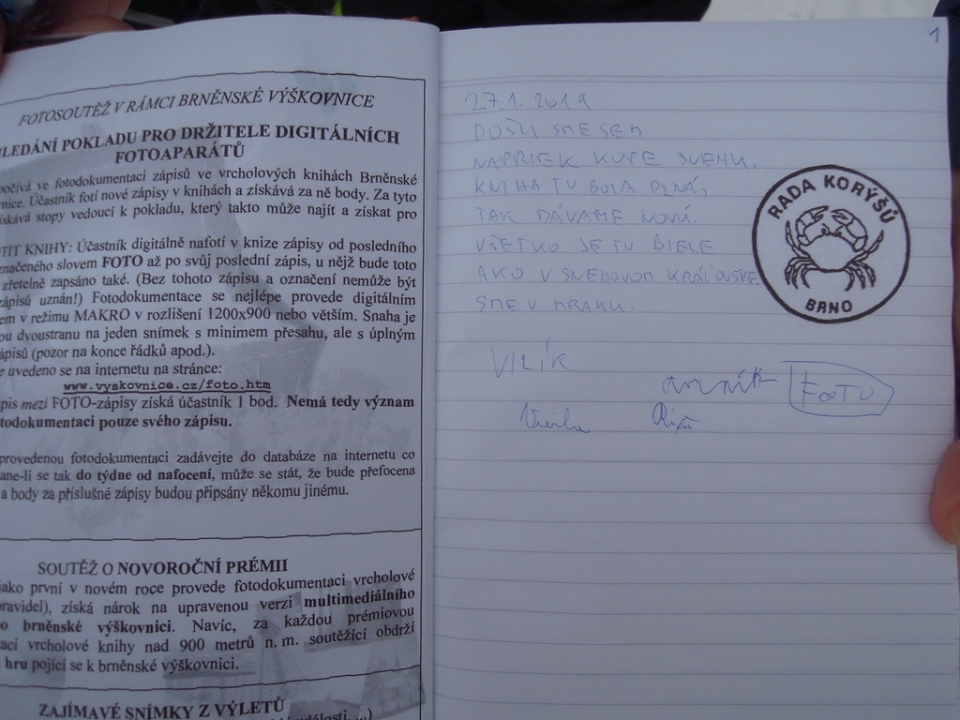 FOTOSOUTĚŽ V RÁMCI BRNĚNSKÉ VÝŠKOVNICE
LEDÁNÍ POKLADU PRO DRŽITELE DIGITÁLNÍCH
FOTOAPARÁTŮ
počívá ve fotodokumentaci zápisů ve vrcholových knihách Brněnské
nice. Účastník fotí nové zápisy v knihách a získává za ně body. Za tyto
ískává stopy vedoucí k pokladu, který takto může najít a získat pro
TIT KNIHY: Účastník digitálně nafotí v knize zápisy od posledního
značeného slovem FOTO až po svůj poslední zápis, u nějž bude toto
zřetelně zapsáno také. (Bez tohoto zápisu a označení nemůže být
zápisů uznán!) Fotodokumentace se nejlépe provede digitálním
em v režimu MAKRO v rozlišení 1200x900 nebo větším. Snaha je
ou dvoustranu na jeden snímek s minimem přesahu, ale s úplným
ápisů (pozor na konce řádků apod.).
e uvedeno se na internetu na stránce:
www.vyskovnice.cz/foto.htm
pis mezi FOTO-zápisy získá účastník 1 bod. Nemá tedy význam
todokumentaci pouze svého zápisu.
provedenou fotodokumentaci zadávejte do databáze na internetu co
ane-li se tak do týdne od nafocení, může se stát, že bude přefocena
a body za příslušné zápisy budou připsány někomu jinému.
SOUTĚŽ O NOVOROČNÍ PRÉMII
jako první v novém roce provede fotodokumentaci vrcholové
pravidel), získá nárok na upravenou verzi multimediálního
o brněnské výškovnici. Navíc, za každou prémiovou
aci vrcholové knihy nad 900 metrů n. m. soutěžící obdrží
hru pojící se k brněnské výškovnici.
ZAJÍMAVÉ SNÍMKY Z VÝLETŮ
1
27.1. 2019
DOŠLI SME SEM
NAPRIEK KOPE SNEHU.
KNIHA TU BOLA PLNÁ,
TAK DÁVAME NOVÚ.
VŠETKO JE TU BIELE
AKO V SNEHOVOM KRÁĽOVSTVE
SME V MRAKU.
RADA KORÝŠŮ
BRNO
VILÍK
FOTO